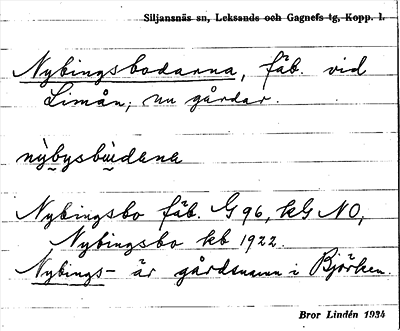 Siljansnäs sn, Leksands och Gagnefs tg, Kopp. l.
Nybingsbodarna, fäb. vid
Limån; nu gårdar.
nỳ̰bysbṳ̀dana
Nybingsbo fäb. G 96, kG NO,
Nybingsbo kb 1922.
Nybings- är gårdsnamn i Björken.
Bror Lindén 1934